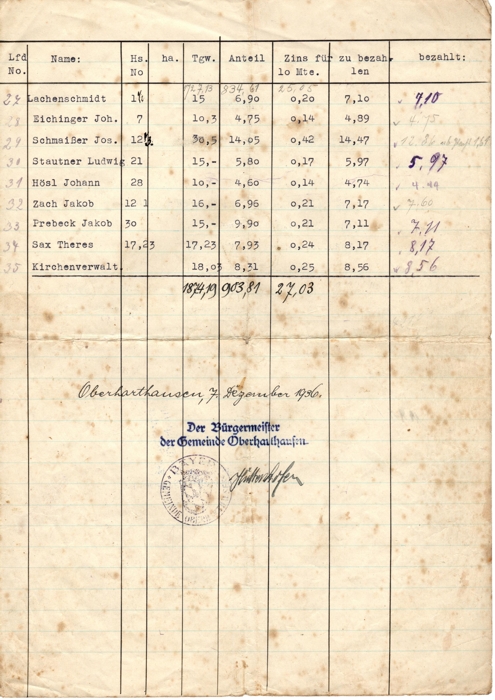 Lfd No. Name: Hs. No ha. Tgw. Anteil Zins für lo Mte. zu bezah- len bezahlt:
1727,13 834,61 25,05
27 Lachenschmidt 1 15 6,90 0,20 7,10 7,10
28 Eichinger Joh. 7 10,3 4,75 0,14 4,89 4.75.
29 Schmaißer Jos. 12 30,5 14,05 0,42 14,47
30 Stautner Ludwig 21 15,- 5,80 0,17 5,97 5,97
31 Hösl Johann 28 10,- 4,60 0,14 4,74
32 Zach Jakob 12 1 16,- 6,96 0,21 7,17 7.60
33 Prebeck Jakob 30 15,- 9,90 0,21 7,11 7,11
34 Sax Theres 17,23 17,23 7,93 0,24 8,17 8,17
35 Kirchenverwalt. 18,03 8,31 0,25 8,56 8,56
1874,19 903,81 27,03
Oberharthausen, 7. Dezember 1936.
Der Bürgermeister
der Gemeinde Oberharthausen.
BAYERN
GEMEINDE